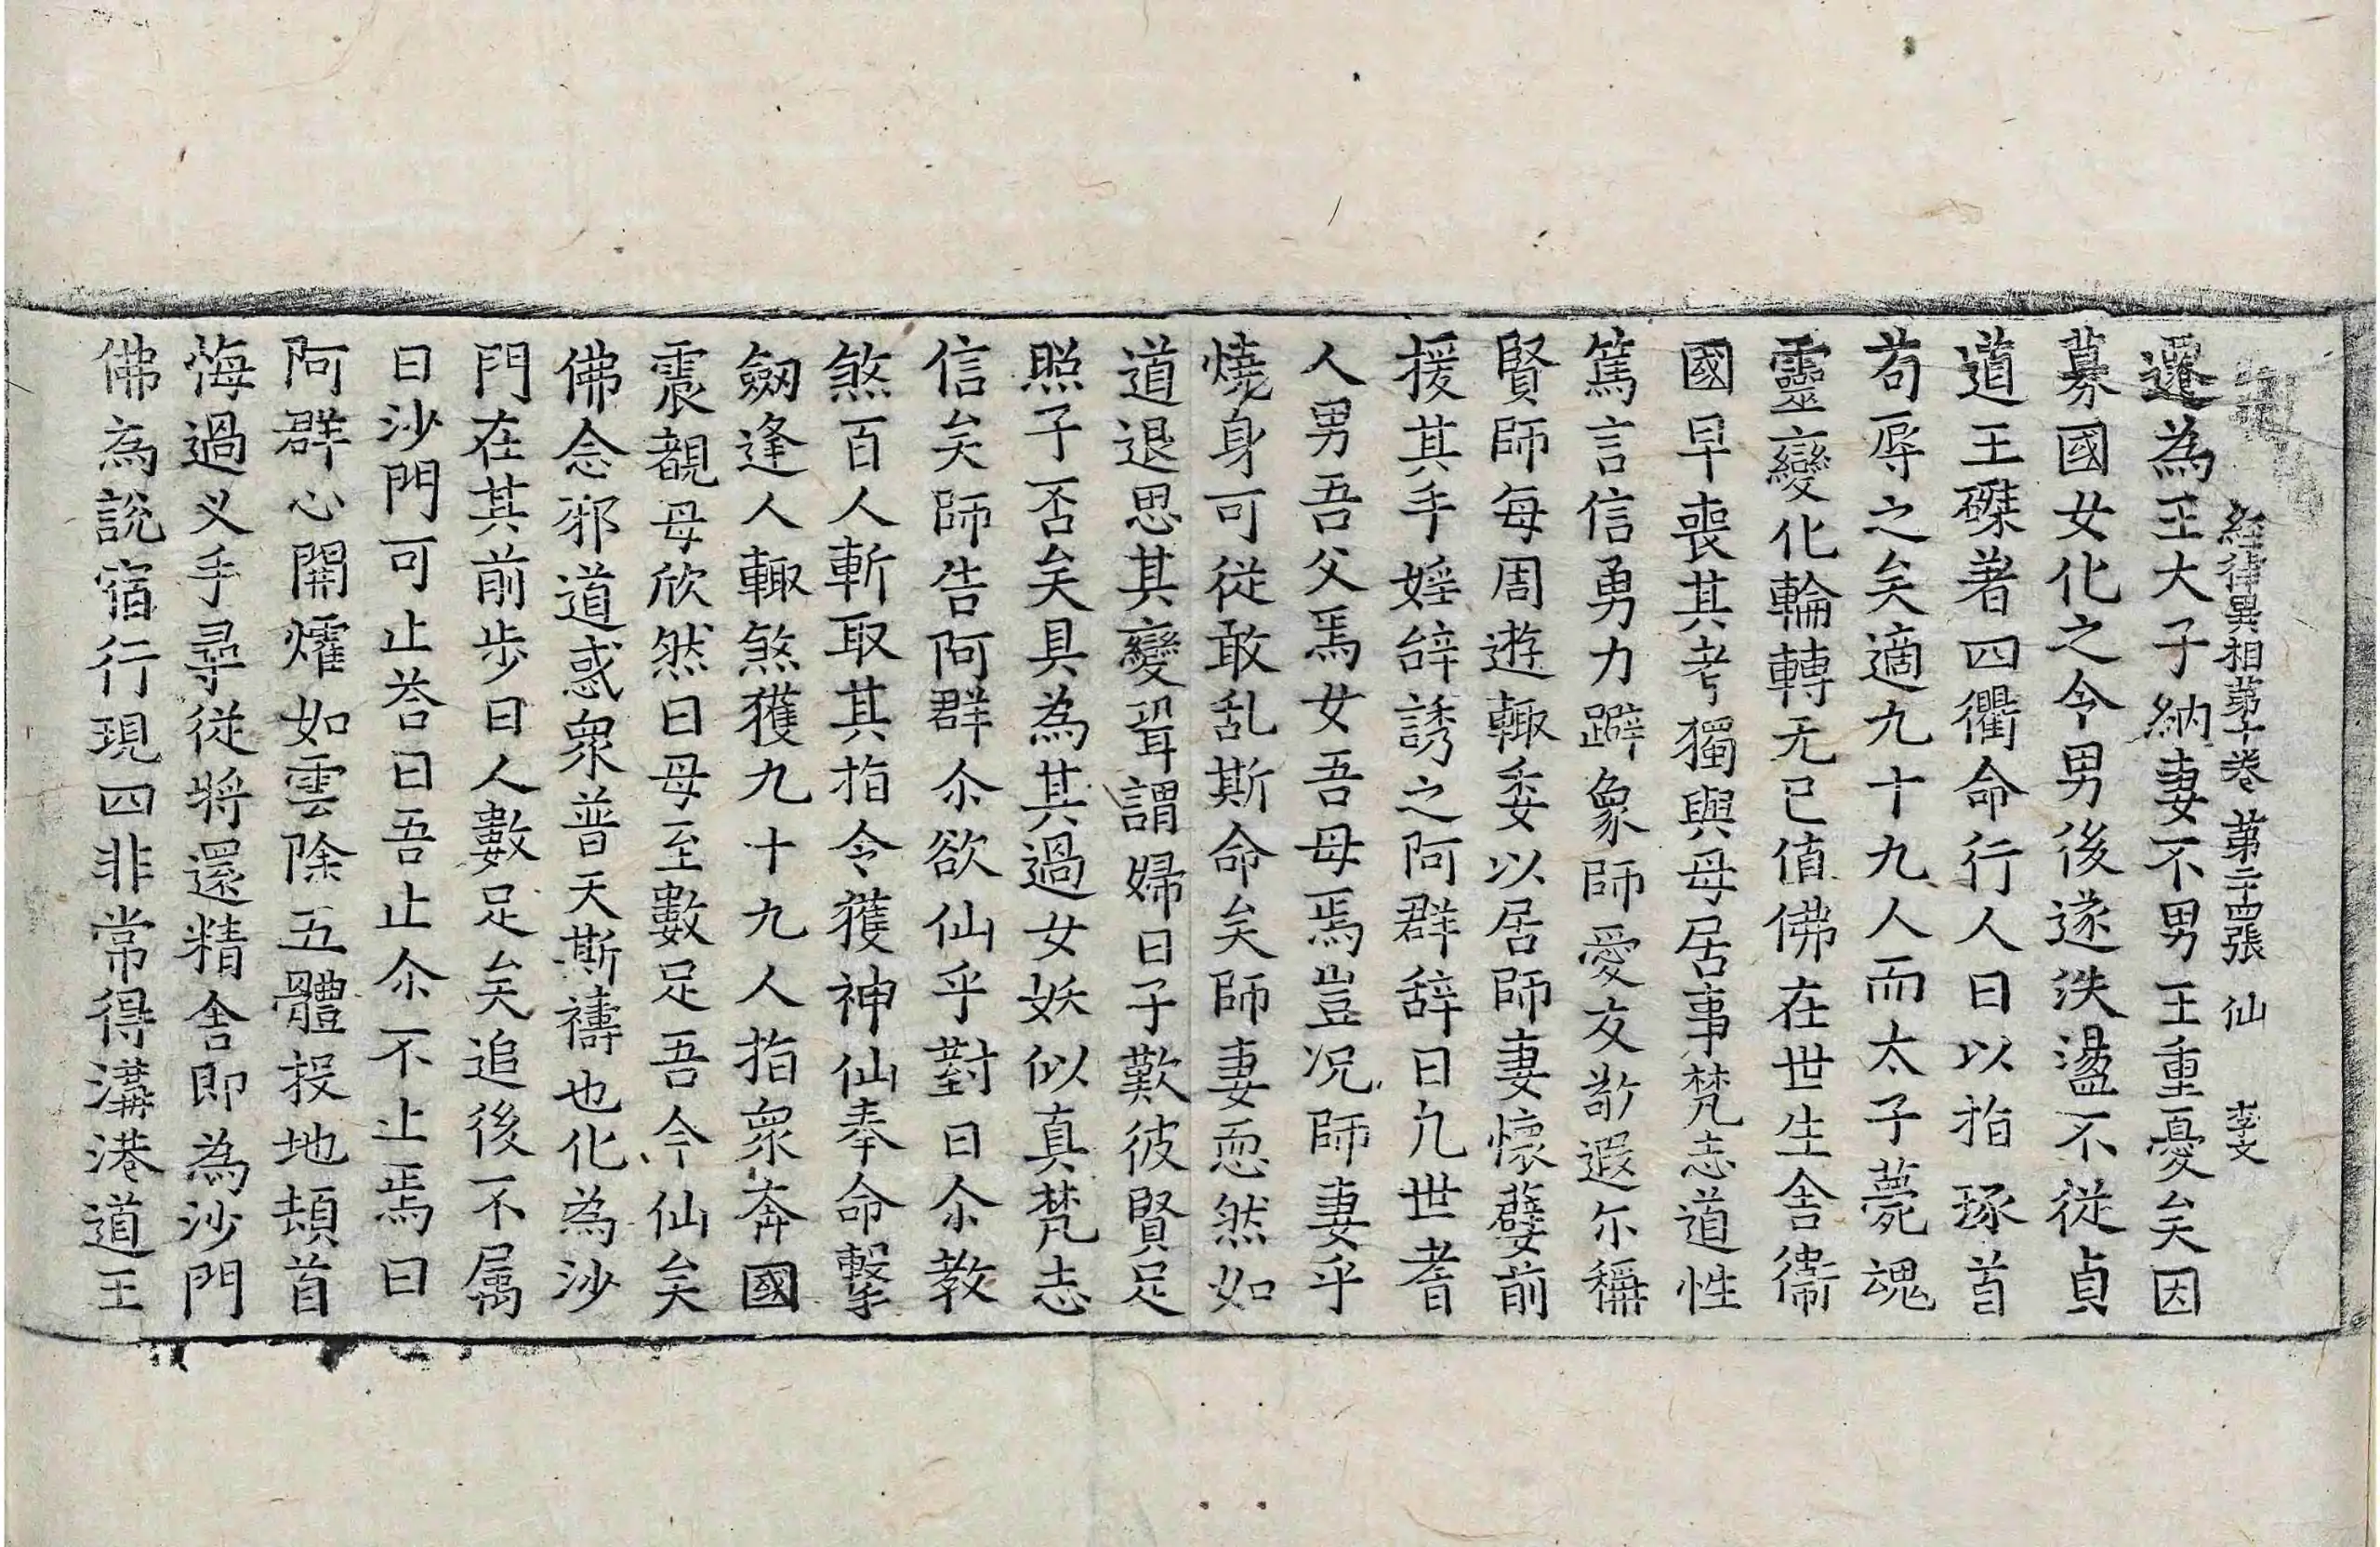 經律異相苐十卷 苐二十四張 仙 李文
還為王太子納妻不男王重憂矣因
募國女化之令男後遂泆盪不從貞
道王磔著四衢命行人曰以指琢首
苟辱之矣適九十九人而太子薨魂
靈變化輪轉无已值佛在世生舍衛
國早喪其考獨與母居事梵志道性
篤言信勇力躃象師愛友敬遐尒稱
賢師每周遊輙委以居師妻懷嬖前
援其手婬辝誘之阿群辝曰凢世耆
人男吾父焉女吾母焉豈況師妻乎
燒身可從敢乱斯命矣師妻恧然如
道退思其變聟謂婦曰子歎彼賢足
照子否矣具為其過女妖似真梵志
信矣師告阿群尒欲仙乎對曰尒教
煞百人斬取其指令獲神仙奉命擊
劒逢人輙煞獲九十九人指衆奔國
震覩母欣然曰母至數足吾今仙矣
佛念邪道惑衆普天斯禱也化為沙
門在其前步曰人數足矣追後不属
曰沙門可止荅曰吾止尒不止焉曰
阿群心開㸌如雲除五體投地頓首
悔過义手尋從將還精舍即為沙門
佛為説宿行現四非常得溝港道王